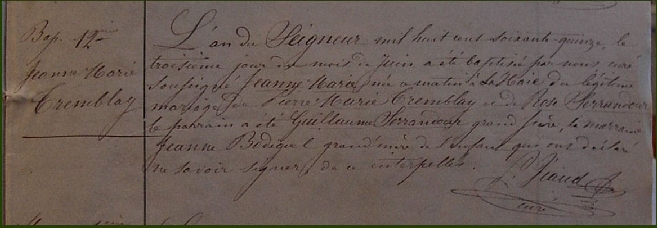 Bap. 12ème
Jeanne Marie
Tremblay
L'an du Seigneur mil huit cent soixante-quinze, le
troisième jour du mois de Juin a été baptisée par nous curé
soussigné Jeanne Marie, née ce matin à La Haie du légitime
mariage de Pierre Marie Tremblay et de Rose
le parrain a été Guillaume grand père, la marraine
Jeanne grand mère de l'enfant qui ont déclaré
ne savoir signer, de ce interpellés.
curé